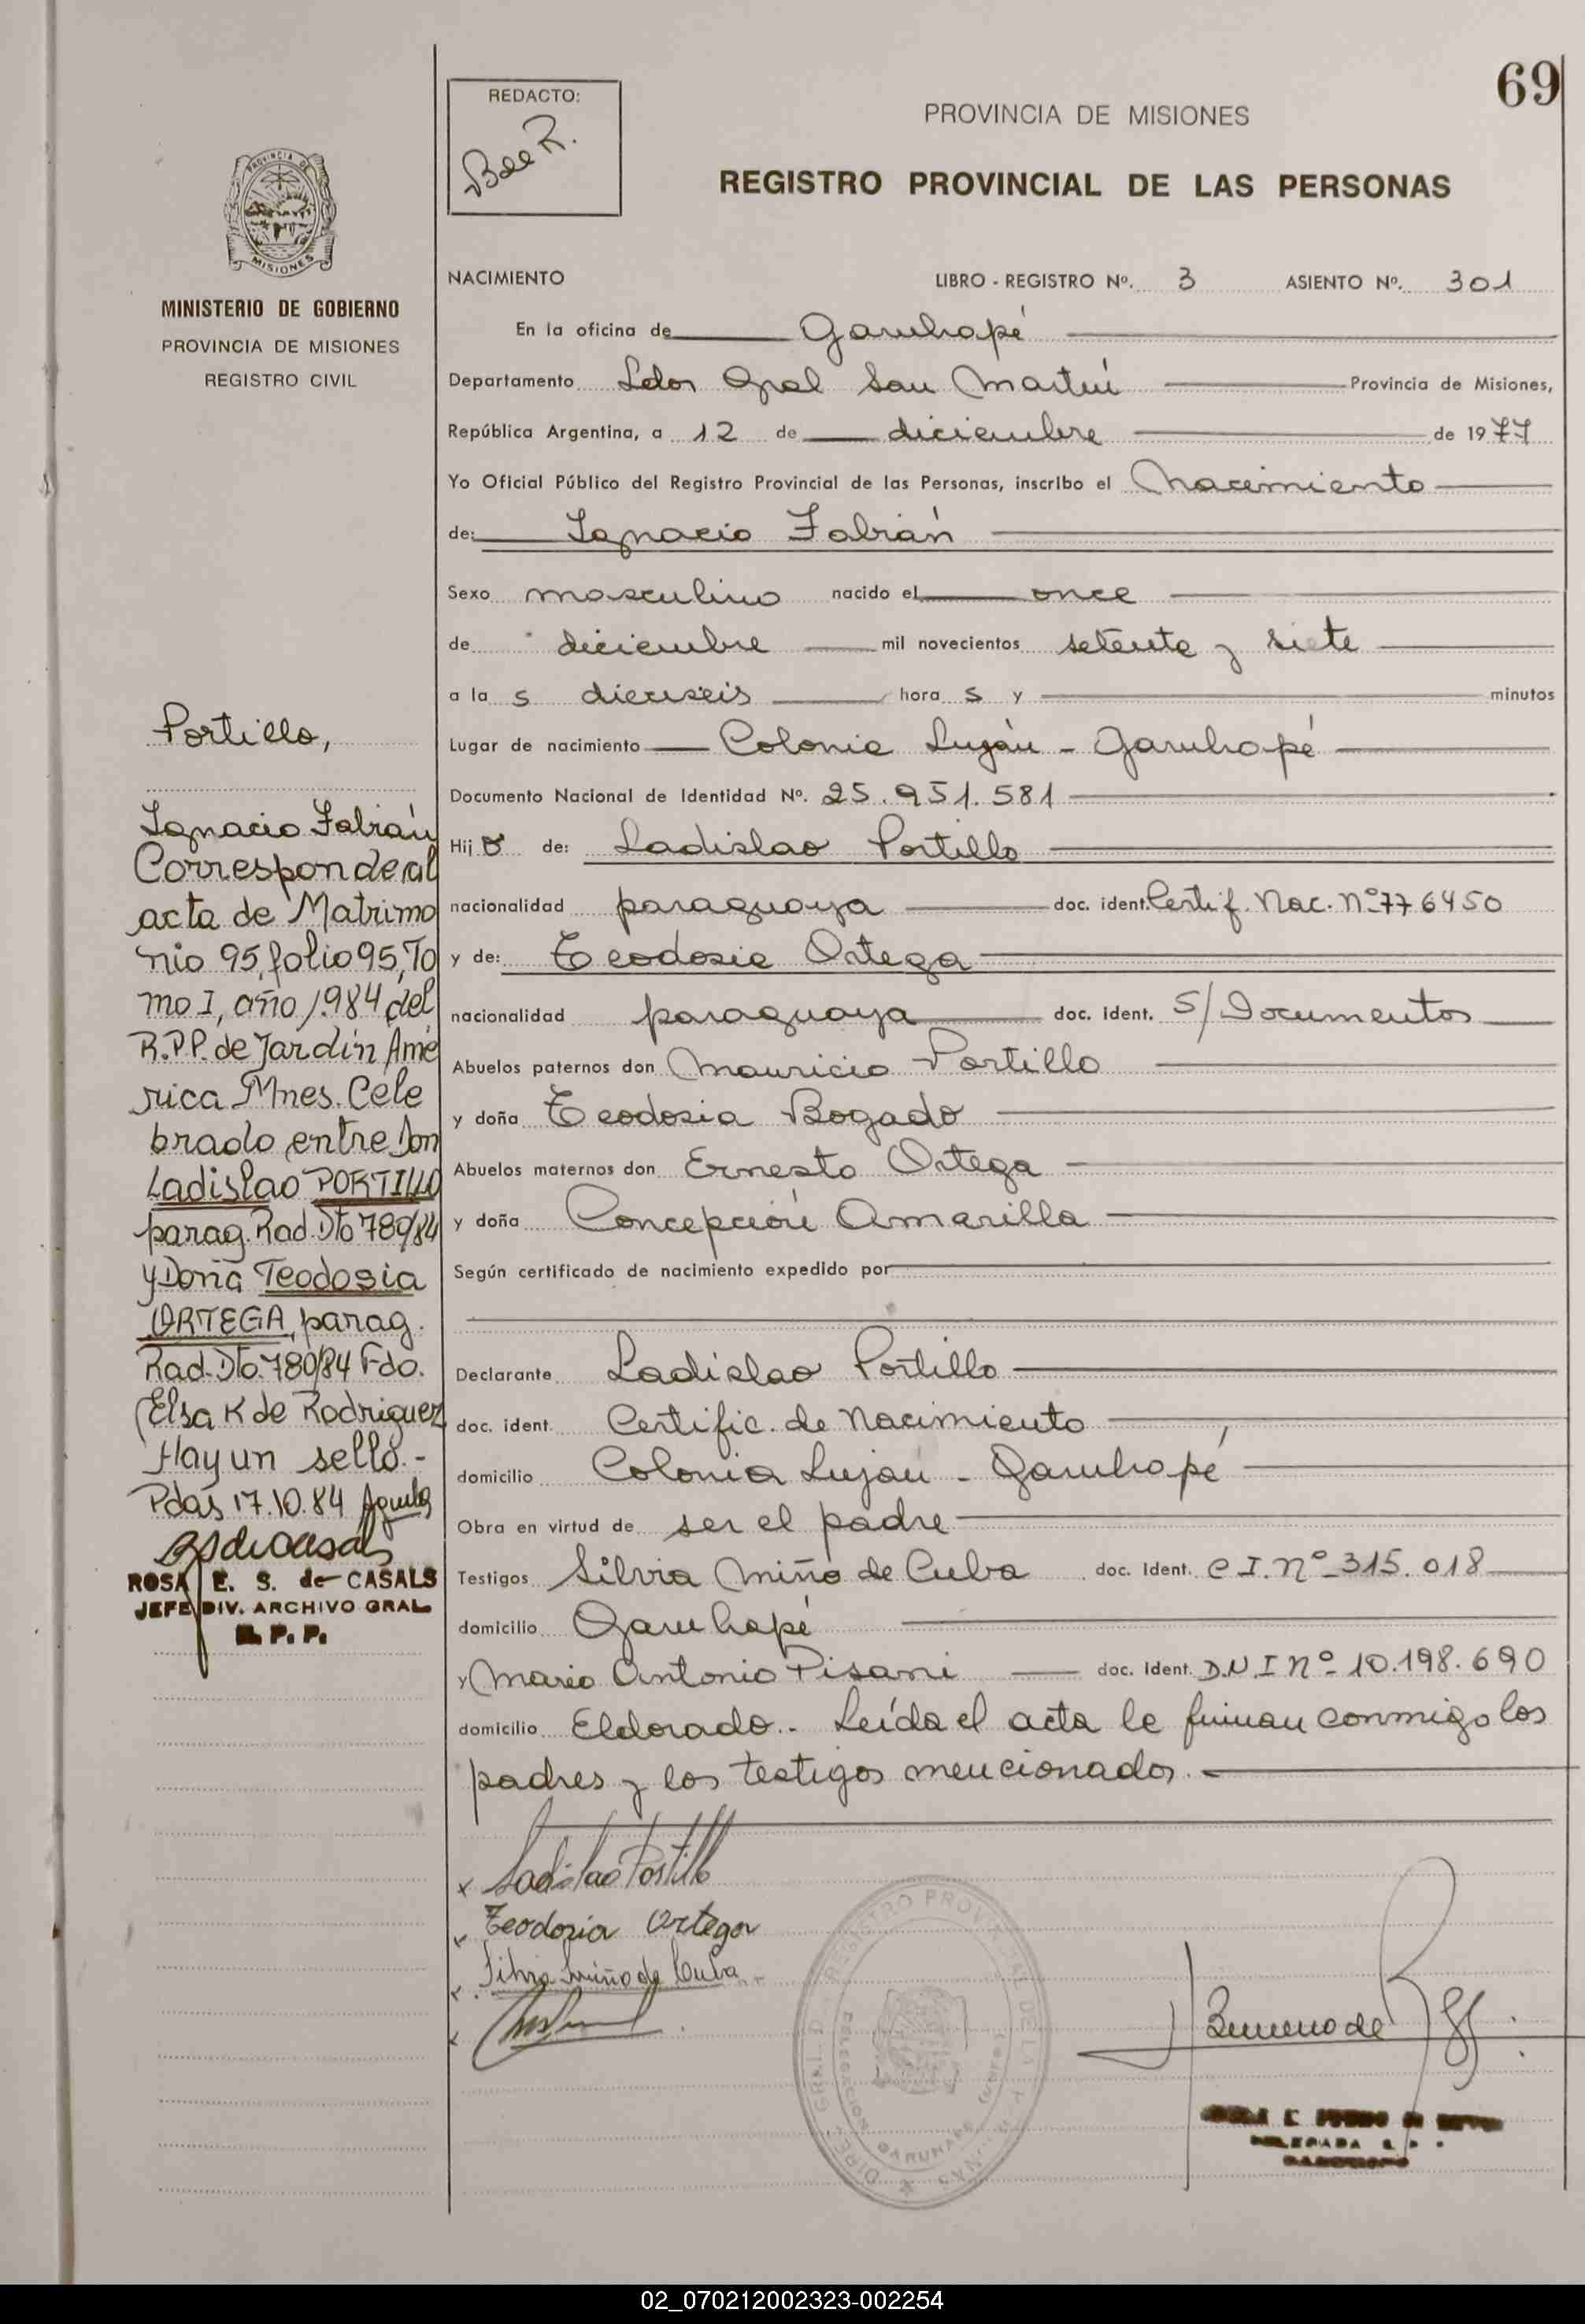 69
REDACTO:
PROVINCIA DE MISIONES
REGISTRO PROVINCIAL DE LAS PERSONAS
PROVINCIA DE
MISIONES
MINISTERIO DE GOBIERNO
PROVINCIA DE MISIONES
REGISTRO CIVIL
NACIMIENTO LIBRO - REGISTRO Nº. 3 ASIENTO Nº. 301
En la oficina de Garuhapé
Departamento Ldor Gral San Martín Provincia de Misiones,
República Argentina, a 12 de diciembre de 1977
Yo Oficial Público del Registro Provincial de las Personas, inscribo el Nacimiento
de: Ignacio Fabián
Sexo masculino nacido el once
de diciembre mil novecientos setenta y siete
a la s dieciseis hora s y minutos
Lugar de nacimiento Colonia Luján - Garuhapé
Documento Nacional de Identidad Nº. 25.951.581
Hij o de: Ladislao Portillo
nacionalidad paraguaya doc. ident. Certif. Nac. Nº 776450
y de: Teodosia Ortega
nacionalidad paraguaya doc. ident. S/Documentos
Abuelos paternos don Mauricio Portillo
y doña Teodosia Bogado
Abuelos maternos don Ernesto Ortega
y doña Concepción Amarilla
Según certificado de nacimiento expedido por
Declarante Ladislao Portillo
doc. ident. Certific. de Nacimiento
domicilio Colonia Luján - Garuhapé
Obra en virtud de ser el padre
Testigos Silvia Miño de Cuba doc. Ident. C I. Nº 315.018
domicilio Garuhapé
y Mario Antonio Pisani doc. Ident. D.N I Nº 10.198.690
domicilio Eldorado.. Leída el acta le firman conmigo los
padres y los testigos mencionados.
Ladislao Portillo
Teodosia Ortega
Silvia Miño de Cuba
Portillo,
Ignacio Fabián
Corresponde al
acta de Matrimo
nio 95, folio 95, To
mo I, año 1.984 del
R.P.P. de Jardín Amé
rica Mnes. Cele
brado entre Don
Ladislao PORTILLO
parag. Rad. Dto 780/84
y Doña Teodosia
ORTEGA, parag.
Rad. Dto. 780/84 Fdo.
Elsa K de Rodriguez
Hay un sello.-
Pdas 17.10.84
ROSA E. S. de CASALS
JEFE DIV. ARCHIVO GRAL
R. P. P.
02_070212002323-002254